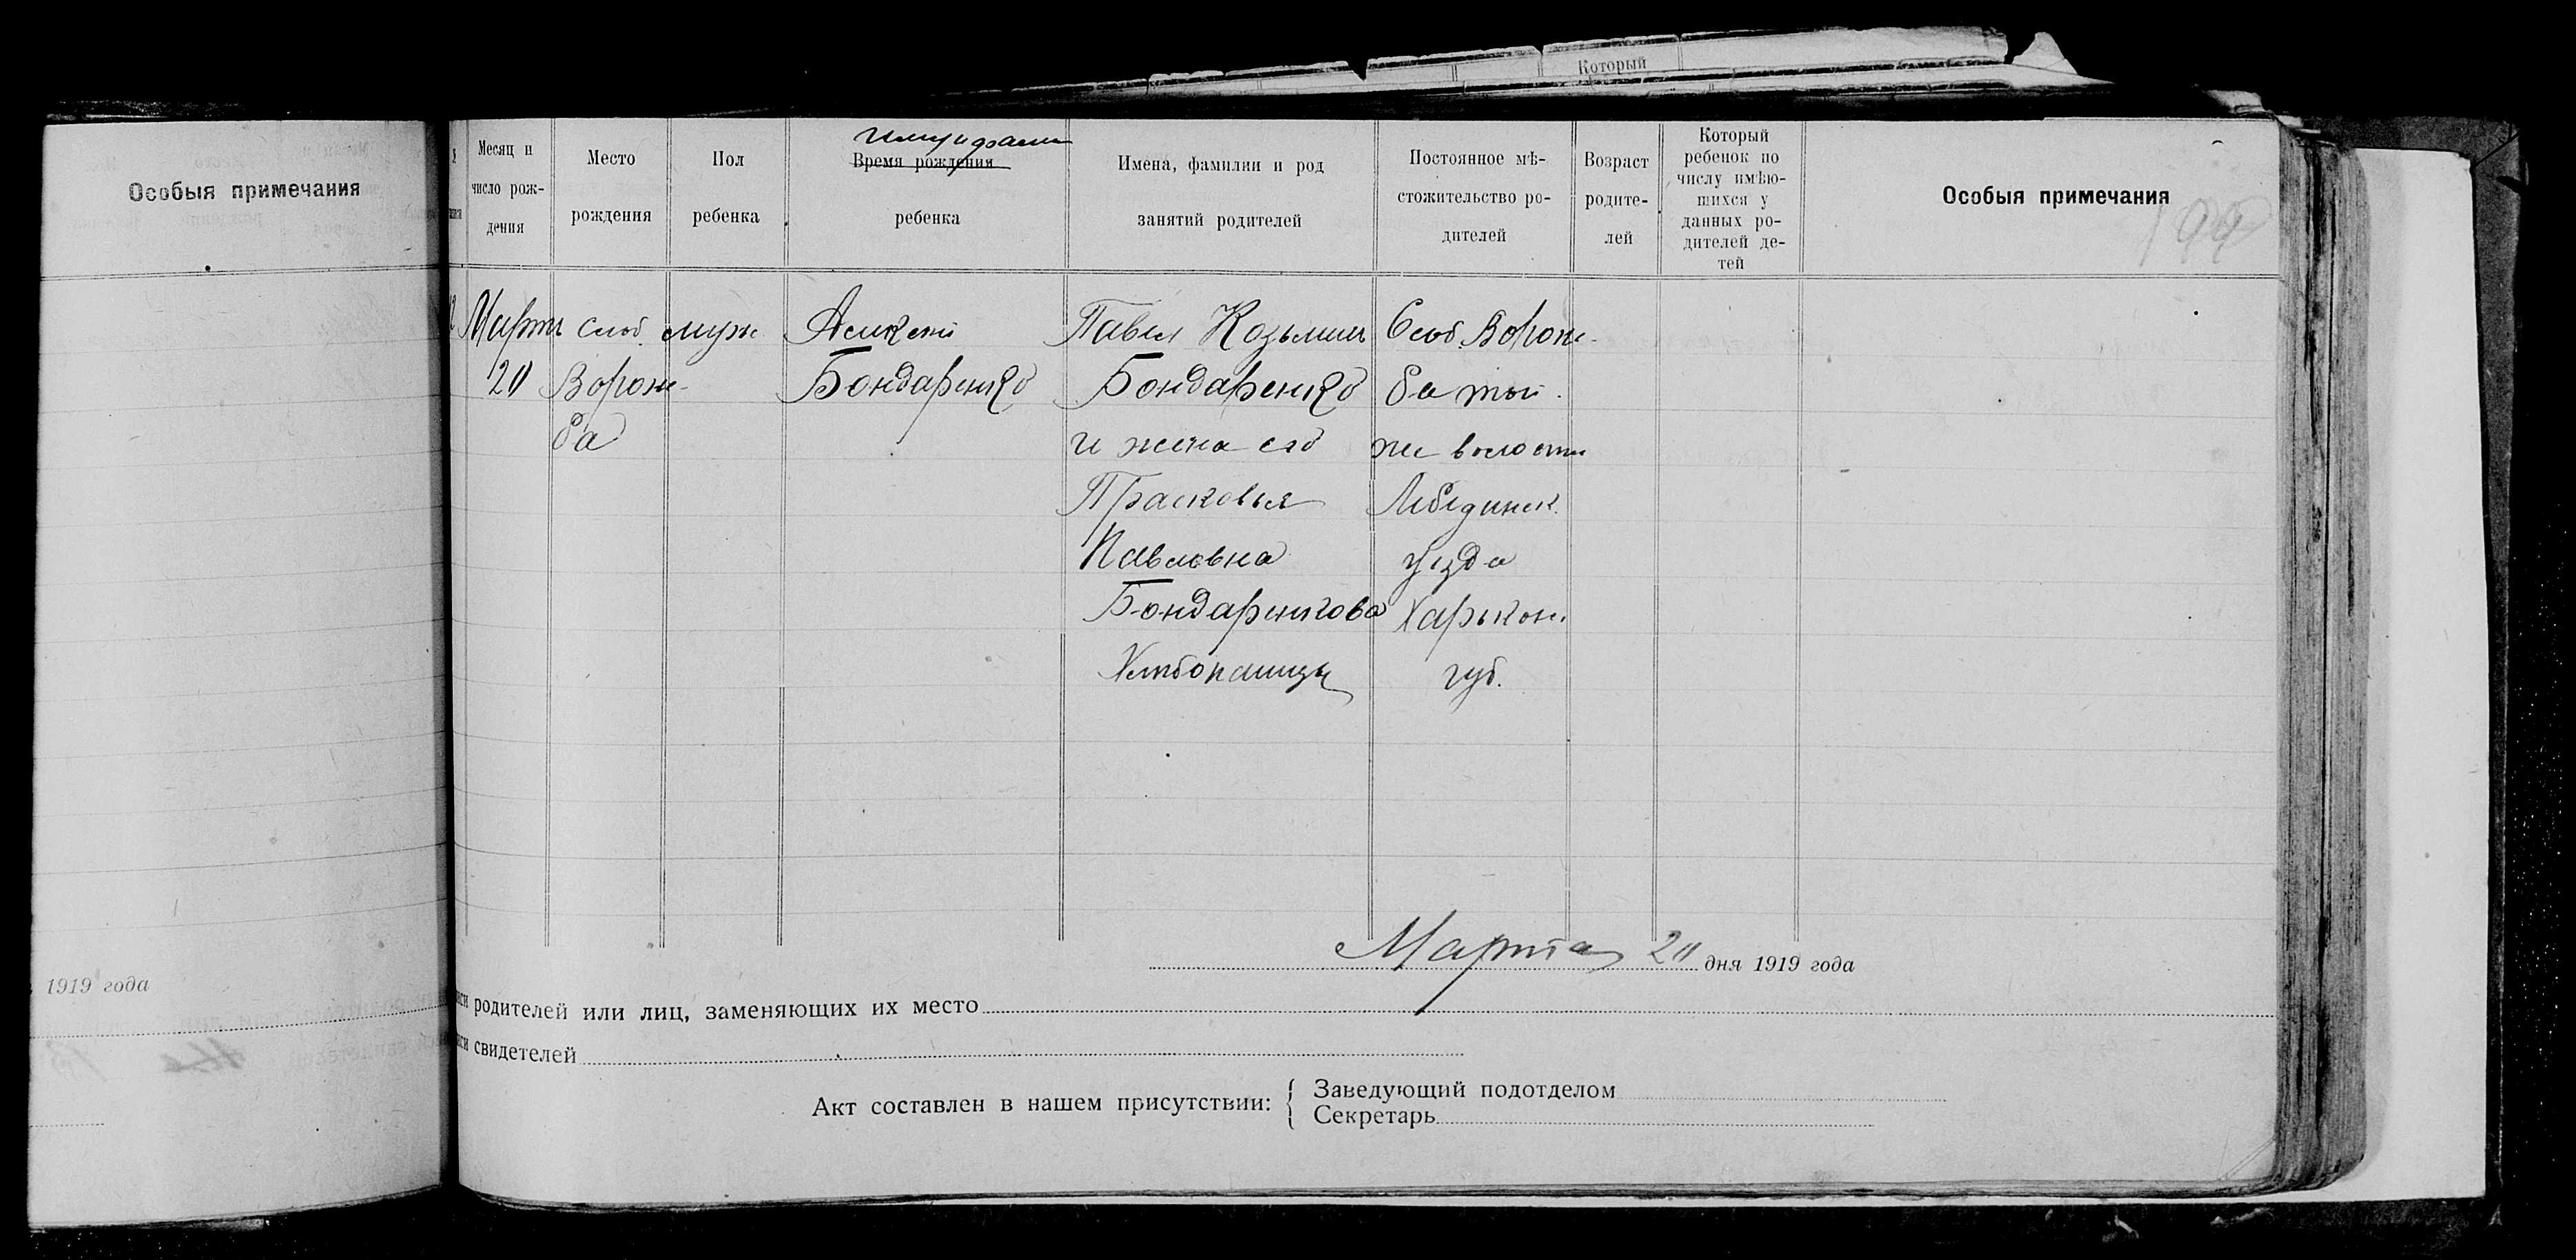 Который
Особыя примечания
1919 года
Месяц и
число рож-
дения
Место
рождения
Пол
ребенка
Время рождения
ребенка
Имена, фамилии и род
занятий родителей
Постоянное мѣ-
стожительство ро-
дителей
Возраст
родите-
лей
Который
ребенок по
числу имѣю-
щихся у
данных ро-
дителей де-
тей
Особыя примечания
Март
20
Слоб.
Ворож-
ба
муж
Алексей
Бондаренко
Павел Козьмич
Бондаренко
и жена его
Прасковья
Павловна
Бондаренкова
Хлебопашцы
Слоб. Ворож-
ба той
же волости
Лебединск.
уезда
Харьков.
губ.
Марта 20 дня 1919 года
родителей или лиц, заменяющих их место
свидетелей
Акт составлен в нашем присутствии:
Заведующий подотделом
Секретарь